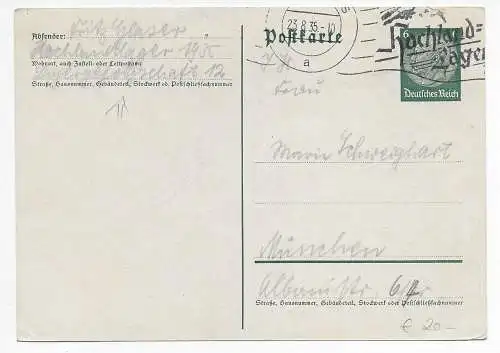 Absender: Fritz Glaser
Hochlandlager 1935
Wohnort, auch Zustell- oder Leitpostamt
Lagerpostschaft 12
Straße, Hausnummer, Gebäudeteil, Stockwerk od. Postschließfachnummer
Postkarte
23.8.35.-10
a
6
Hochland=
Lager
Deutsches Reich
Frau
Marie Schweighart
München
Straße, Hausnummer, Gebäudeteil, Stockwerk oder Postschließfachnummer
€ 20.-